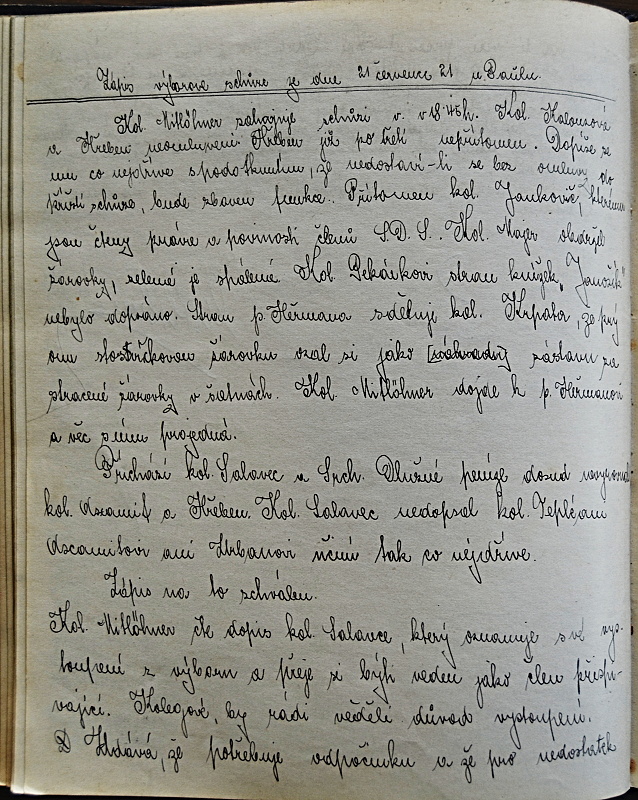 Zápis výborové schůze ze dne 21 července 21 u Paulu.
Kol. Mitlöhner zahajuje schůzi v. v 18·45h. Kol. Kalousová
a Hřeben neomluveni. Hřeben již po třetí nepřítomen. Dopíše se
mu co nejdříve s podotknutím, že nedostaví-li se bez omluvy do
příští schůze, bude zbaven funkce. Přítomen kol. Jankovič, kterému
jsou čteny práva a povinosti členů S.D.S. Kol. Majer obdržel
žárovky, zelené je spálené. Kol. Pekárkovi stran knížek „Janošík"
nebylo dopráno. Stran p. Heřmana sděluje kol. Krpata, že prý
onu stosvíčkovou žárovku vzal si jako [náhradu] zástavu za
stracené žárovky v šatnách. Kol. Mitlöhner dojde k p. Heřmanovi
a věc s ním projedná.
Přichází kol. Salavec a Srch. Dlužné peníze dosud nevyrovnal
kol. Aksamit a Hřeben. Kol. Salavec nedopsal kol. Teplé ani
Aksamitovi ani Urbanovi učiní tak co nejdříve.
Zápis na to schválen.
Kol. Mitlöhner čte dopis kol. Salavce, který oznamuje své vys-
toupení z výboru a přeje si býti veden jako člen přispí-
vající. Kolegové, by rádi věděli důvod vystoupení.
Udává, že potřebuje odpočinku a že pro nedostatek